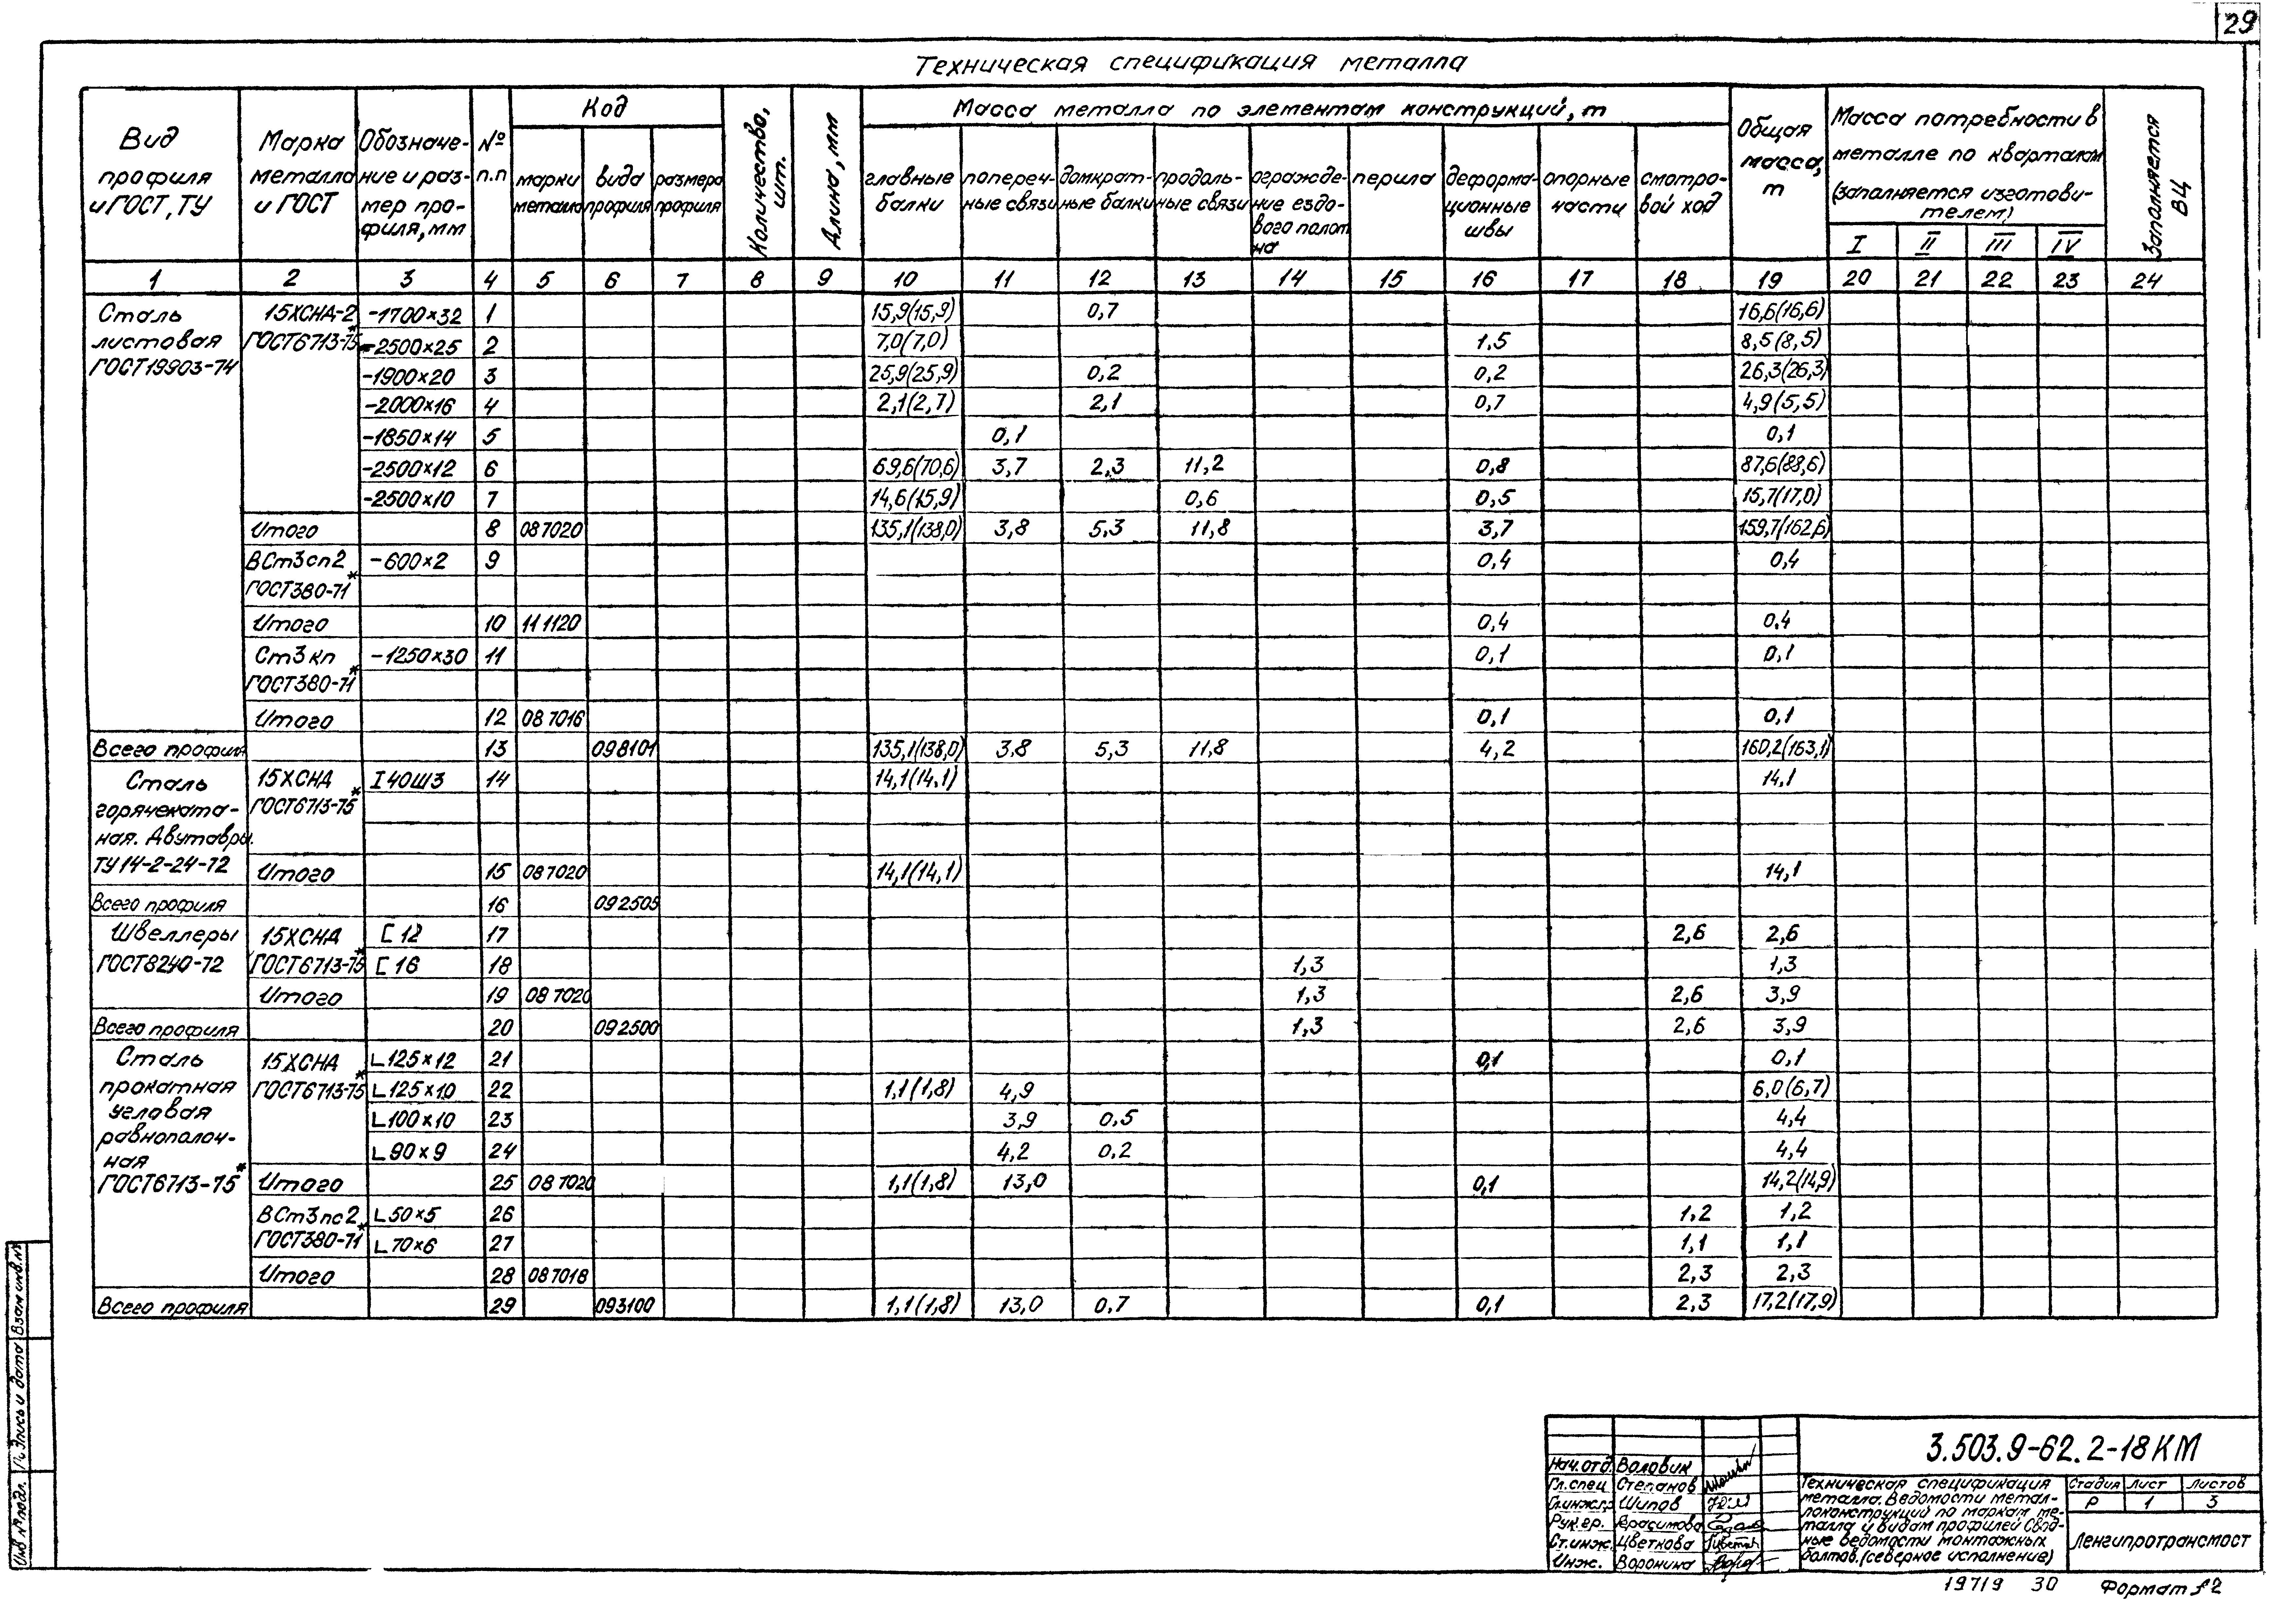 29
Техническая спецификация металла
Вид профиля и ГОСТ, ТУ
Марка металла и ГОСТ
Обозначе-ние и раз-мер про-филя, мм
№ п.п
Код
марки металла
вида профиля
размера профиля
Количество, шт.
Длина, мм
Масса металла по элементам конструкций, т
главные балки
попереч-ные связи
домкрат-ные балки
продоль-ные связи
огражде-ние ездо-вого полот на
перила
деформа-ционные швы
опорные части
смотро-вой ход
Общая масса, т
Масса потребности в металле по кварталам (заполняется изготови-телем)
I II III IV
Заполняется ВЦ
1 2 3 4 5 6 7 8 9 10 11 12 13 14 15 16 17 18 19 20 21 22 23 24
Сталь 15ХСНД-2 -1700×32 1 15,9(15,9) 0,7 16,6(16,6)
листовая ГОСТ6713-75* -2500×25 2 7,0(7,0) 1,5 8,5(8,5)
ГОСТ19903-74 -1900×20 3 25,9(25,9) 0,2 0,2 26,3(26,3)
-2000×16 4 2,1(2,7) 2,1 0,7 4,9(5,5)
-1850×14 5 0,1 0,1
-2500×12 6 69,6(70,6) 3,7 2,3 11,2 0,8 87,6(88,6)
-2500×10 7 14,6(15,9) 0,6 0,5 15,7(17,0)
Итого 8 087020 135,1(138,0) 3,8 5,3 11,8 3,7 159,7(162,6)
ВСт3сп2 -600×2 9 0,4 0,4
ГОСТ380-71*
Итого 10 111120 0,4 0,4
Ст3кп -1250×30 11 0,1 0,1
ГОСТ380-71*
Итого 12 087016 0,1 0,1
Всего профиля 13 098101 135,1(138,0) 3,8 5,3 11,8 4,2 160,2(163,1)
Сталь 15ХСНД I40Ш3 14 14,1(14,1) 14,1
горячеката- ГОСТ6713-75*
ная. Двутавры.
ТУ14-2-24-72 Итого 15 087020 14,1(14,1) 14,1
Всего профиля 16 092505
Швеллеры 15ХСНД [12 17 2,6 2,6
ГОСТ8240-72 ГОСТ6713-75* [16 18 1,3 1,3
Итого 19 087020 1,3 2,6 3,9
Всего профиля 20 092500 1,3 2,6 3,9
Сталь 15ХСНД L125×12 21 0,1 0,1
прокатная ГОСТ6713-75* L125×10 22 1,1(1,8) 4,9 6,0(6,7)
угловая L100×10 23 3,9 0,5 4,4
равнополоч- L90×9 24 4,2 0,2 4,4
ная
ГОСТ6713-75* Итого 25 087020 1,1(1,8) 13,0 0,1 14,2(14,9)
ВСт3пс2 L50×5 26 1,2 1,2
ГОСТ380-71* L70×6 27 1,1 1,1
Итого 28 087018 2,3 2,3
Всего профиля 29 093100 1,1(1,8) 13,0 0,7 0,1 2,3 17,2(17,9)
Инв № подл. Подпись и дата Взам инв.№
3.503.9-62.2-18КМ
Нач.отд. Воловик
Гл.спец Степанов
Гл.инж.пр Шипов
Рук.гр. Герасимова
Ст.инж. Цветкова
Инж. Воронина
Техническая спецификация
металла. Ведомости метал-
локонструкций по маркам ме-
талла и видам профилей Свод-
ные ведомости монтажных
болтов. (северное исполнение)
Стадия Лист Листов
Р 1 3
Ленгипротрансмост
19719 30 Формат А2